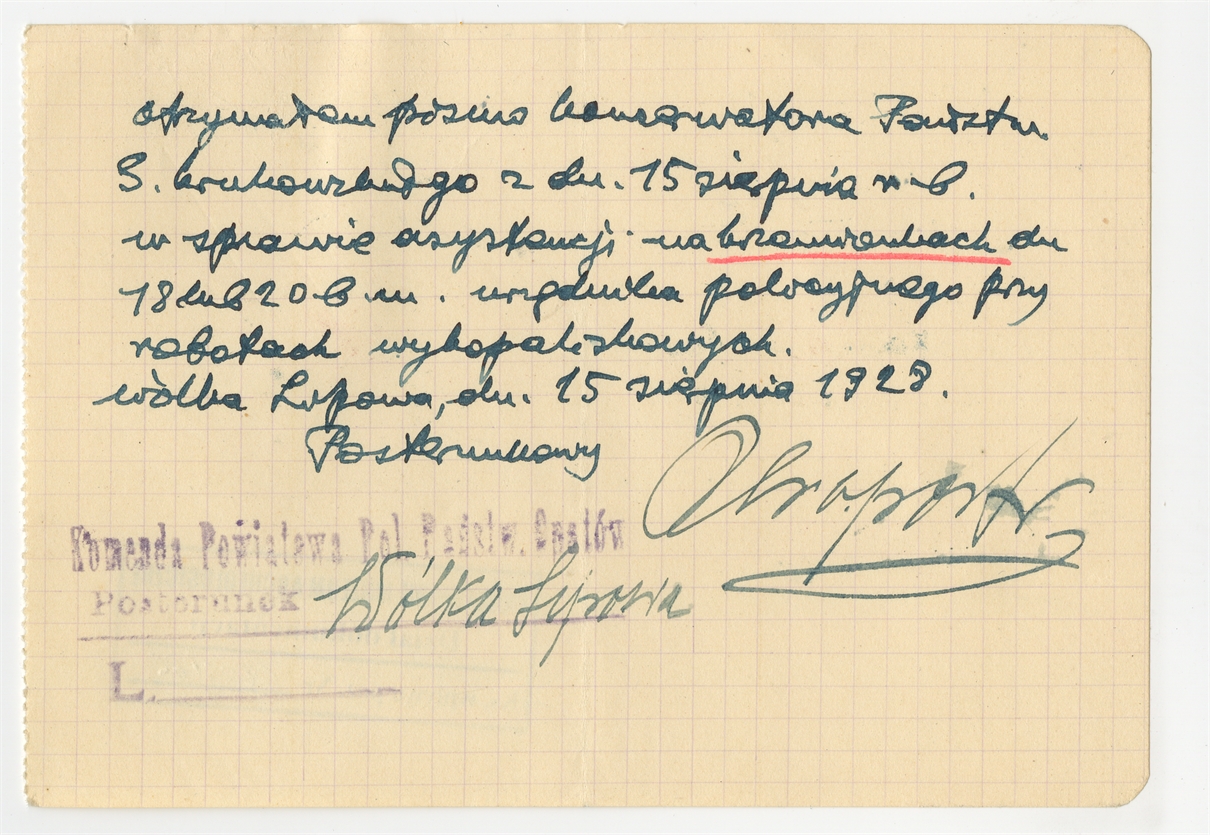 otrzymałem pismo konserwatora Państw.
S. Krukowskiego z dn. 15 sierpnia r. b.
w sprawie asystencji na krzemionkach dn
18 lub 20 b. m. urzędnika policyjnego przy
robotach wykopaliskowych.
Wólka Lipowa, dn. 15 sierpnia 1928.
Posterunkowy
Komenda Powiatowa Pol. Państw. Opatów
Posterunek Wólka Lipowa
L.